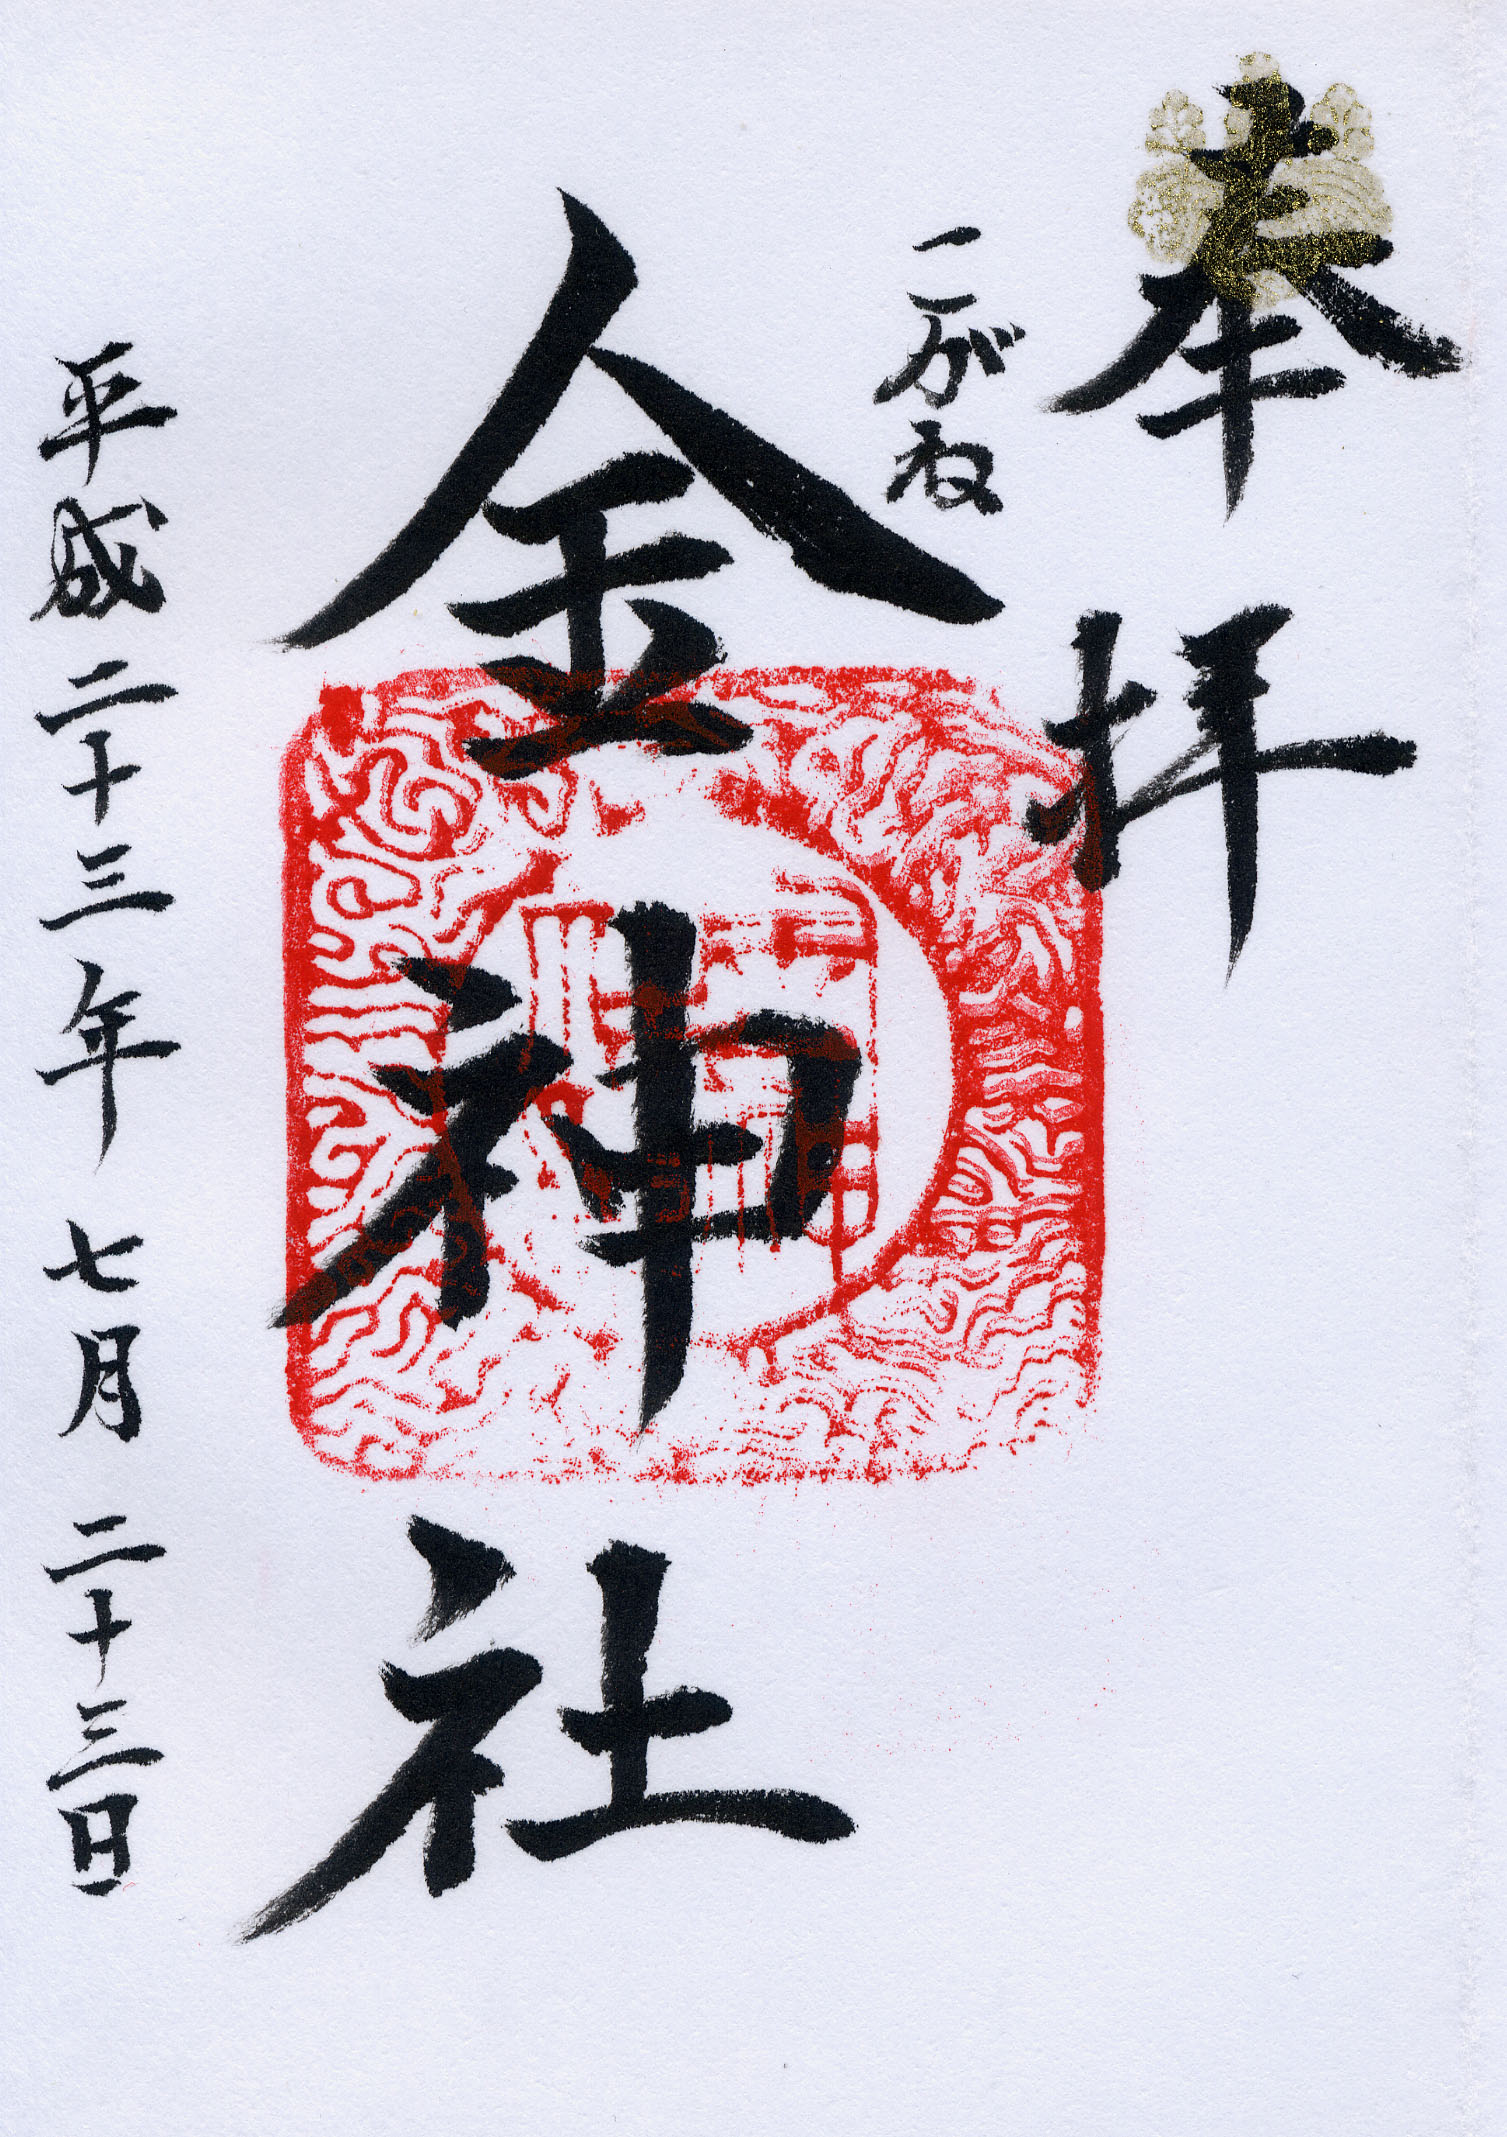 奉拝
こがね
金神社
平成二十三年 七月 二十三日